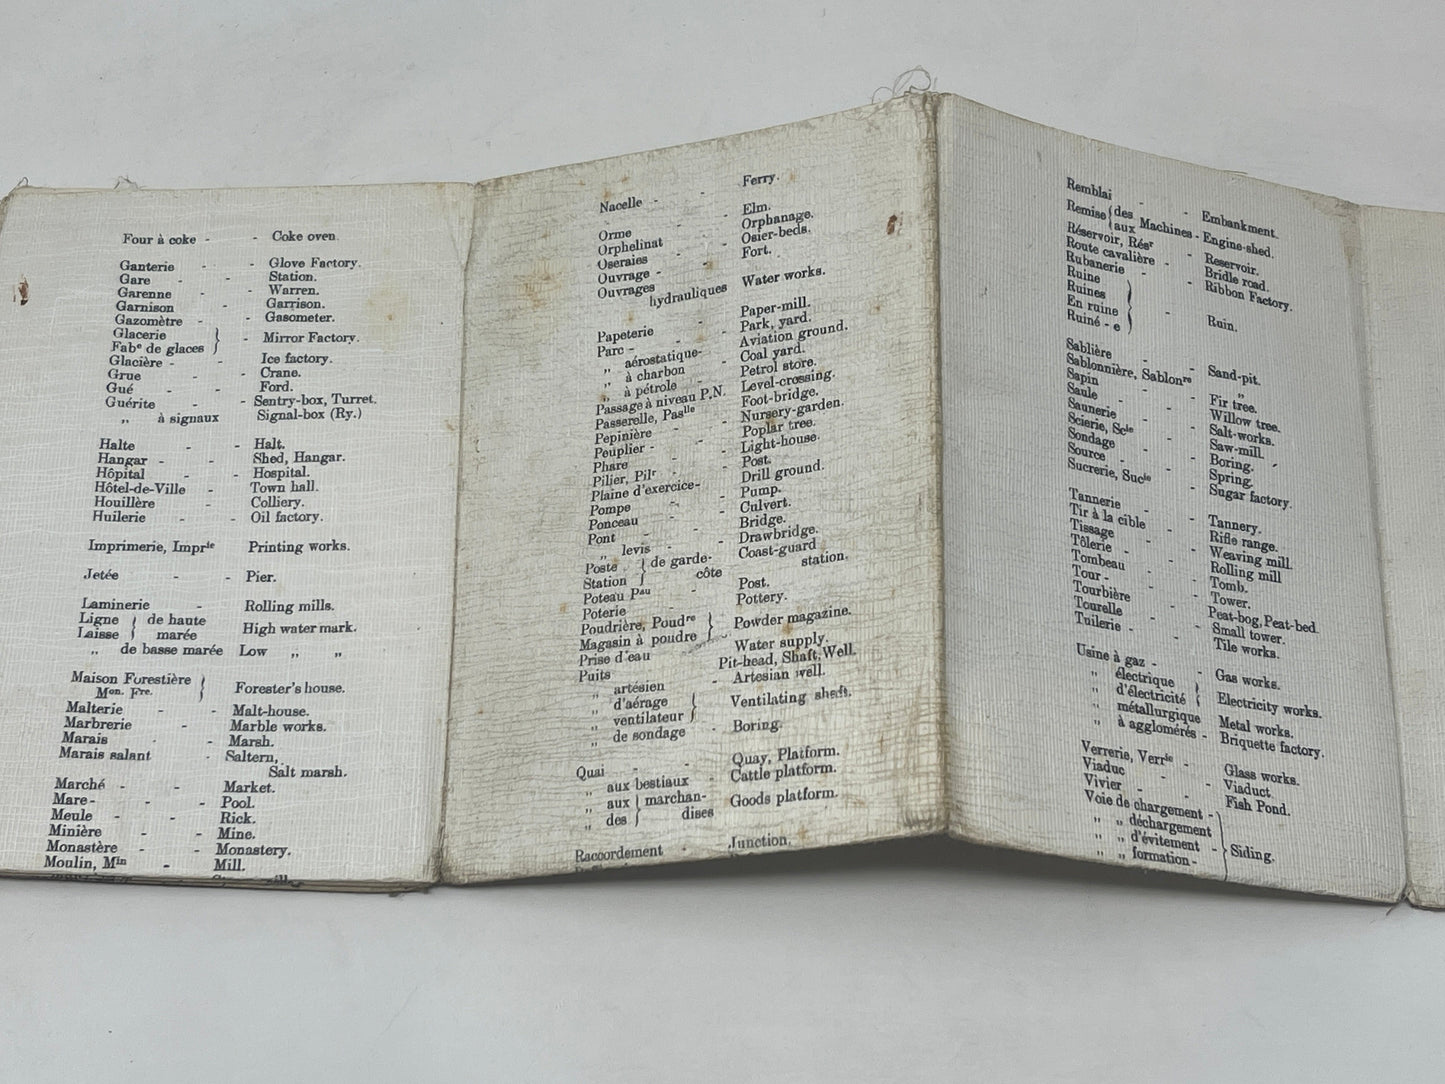 Four à coke - - Coke oven.
Ganterie - - Glove Factory.
Gare - - Station.
Garenne - - Warren.
Garnison - - Garrison.
Gazomètre - - Gasometer.
Glacerie }
Fabᵉ de glaces } - Mirror Factory.
Glacière - - Ice factory.
Grue - - Crane.
Gué - - Ford.
Guérite - - Sentry-box, Turret.
„ à signaux Signal-box (Ry.)
Halte - - Halt.
Hangar - - Shed, Hangar.
Hôpital - - Hospital.
Hôtel-de-Ville - Town hall.
Houillère - - Colliery.
Huilerie - - Oil factory.
Imprimerie, Imprⁱᵉ Printing works.
Jetée - - Pier.
Laminerie - Rolling mills.
Ligne } de haute
Laisse } marée High water mark.
„ de basse marée Low „ „
Maison Forestière }
Mᵒⁿ. Fʳᵉ. } Forester's house.
Malterie - - Malt-house.
Marbrerie - - Marble works.
Marais - - Marsh.
Marais salant - Saltern,
Salt marsh.
Marché - - Market.
Mare - - - Pool.
Meule - - - Rick.
Minière - - Mine.
Monastère - - Monastery.
Moulin, Mⁱⁿ - Mill.
Nacelle - - Ferry.
Orme - Elm.
Orphelinat - Orphanage.
Oseraies - Osier-beds.
Ouvrage - - Fort.
Ouvrages
hydrauliques Water works.
Papeterie - Paper-mill.
Parc - - Park, yard.
„ aérostatique- Aviation ground.
„ à charbon - Coal yard.
„ à pétrole - Petrol store.
Passage à niveau P.N. Level-crossing.
Passerelle, Pasˡˡᵉ Foot-bridge.
Pepinière - Nursery-garden.
Peuplier - - Poplar tree.
Phare - - Light-house.
Pilier, Pilʳ - - Post.
Plaine d'exercice- Drill ground.
Pompe - - Pump.
Ponceau - - Culvert.
Pont - - Bridge.
„ levis - - Drawbridge.
Poste } de garde- Coast-guard
Station } côte station.
Poteau Pᵃᵘ - Post.
Poterie - - Pottery.
Poudrière, Poudʳᵉ }
Magasin à poudre } Powder magazine.
Prise d'eau Water supply.
Puits Pit-head, Shaft, Well.
„ artésien - Artesian well.
„ d'aérage }
„ ventilateur } Ventilating shafts.
„ de sondage - Boring.
Quai - - Quay, Platform.
„ aux bestiaux - Cattle platform.
„ aux } marchan-
„ des } dises Goods platform.
Raccordement - Junction.
Remblai - - Embankment.
Remise { des Machines - Engine-shed.
aux
Réservoir, Résʳ - Reservoir.
Route cavalière - Bridle road.
Rubanerie - - Ribbon Factory.
Ruine }
Ruines }
En ruine } - Ruin.
Ruiné - e }
Sablière - - Sand-pit.
Sablonnière, Sablonʳᵉ „
Sapin - - Fir tree.
Saule - - Willow tree.
Saunerie - - Salt-works.
Scierie, Scⁱᵉ - Saw-mill.
Sondage - - Boring.
Source - - Spring.
Sucrerie, Sucⁱᵉ - Sugar factory.
Tannerie - - Tannery.
Tir à la cible - Rifle range.
Tissage - - Weaving mill.
Tôlerie - - Rolling mill
Tombeau - - Tomb.
Tour - - - Tower.
Tourbière - - Peat-bog, Peat-bed
Tourelle - - Small tower.
Tuilerie - - Tile works.
Usine à gaz - - Gas works.
„ électrique }
„ d'électricité } Electricity works.
„ métallurgique Metal works.
„ à agglomérés - Briquette factory.
Verrerie, Verrⁱᵉ - Glass works.
Viaduc - - Viaduct
Vivier - - Fish Pond.
Voie de chargement - }
„ „ déchargement }
„ „ d'évitement - } Siding.
„ „ formation - }